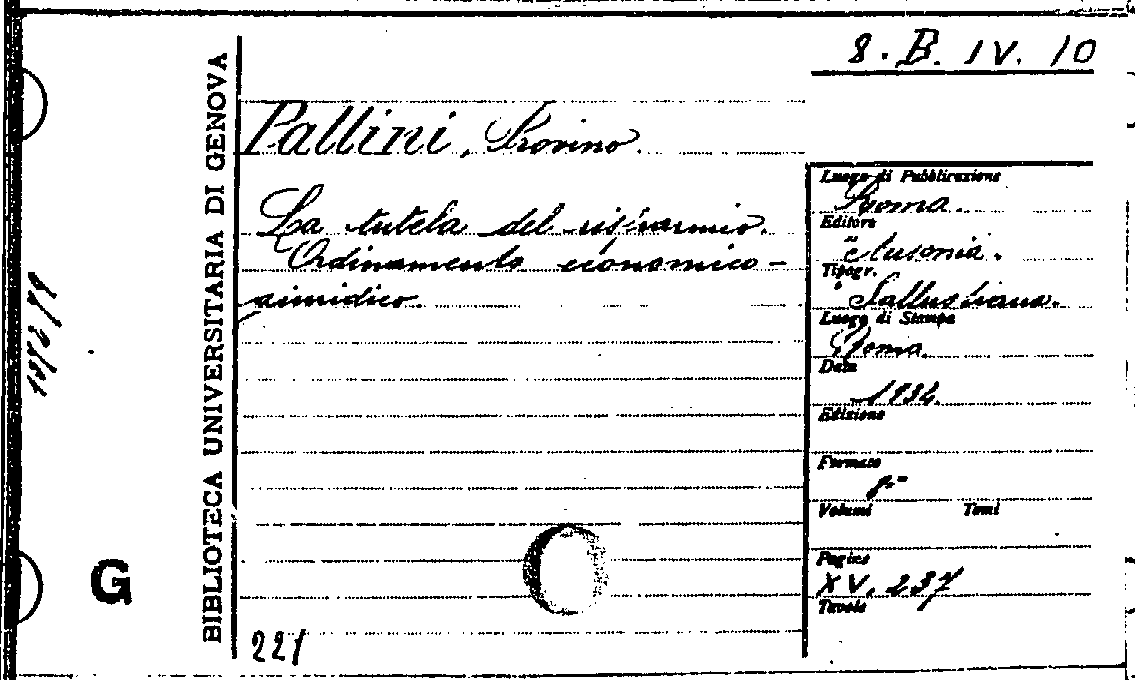 8. B. IV. 10
BIBLIOTECA UNIVERSITARIA DI GENOVA
Pallini,
La tutela del risparmio.
Ordinamento economico-
giuridico.
Luogo di Pubblicazione
Roma.
Editore
"Ausonia.
Tipogr.
Sallustiana.
Luogo di Stampa
Roma.
Data
1934.
Edizione
Formato
8°
Volumi Tomi
Pagine
XV, 237
Tavole
G
221